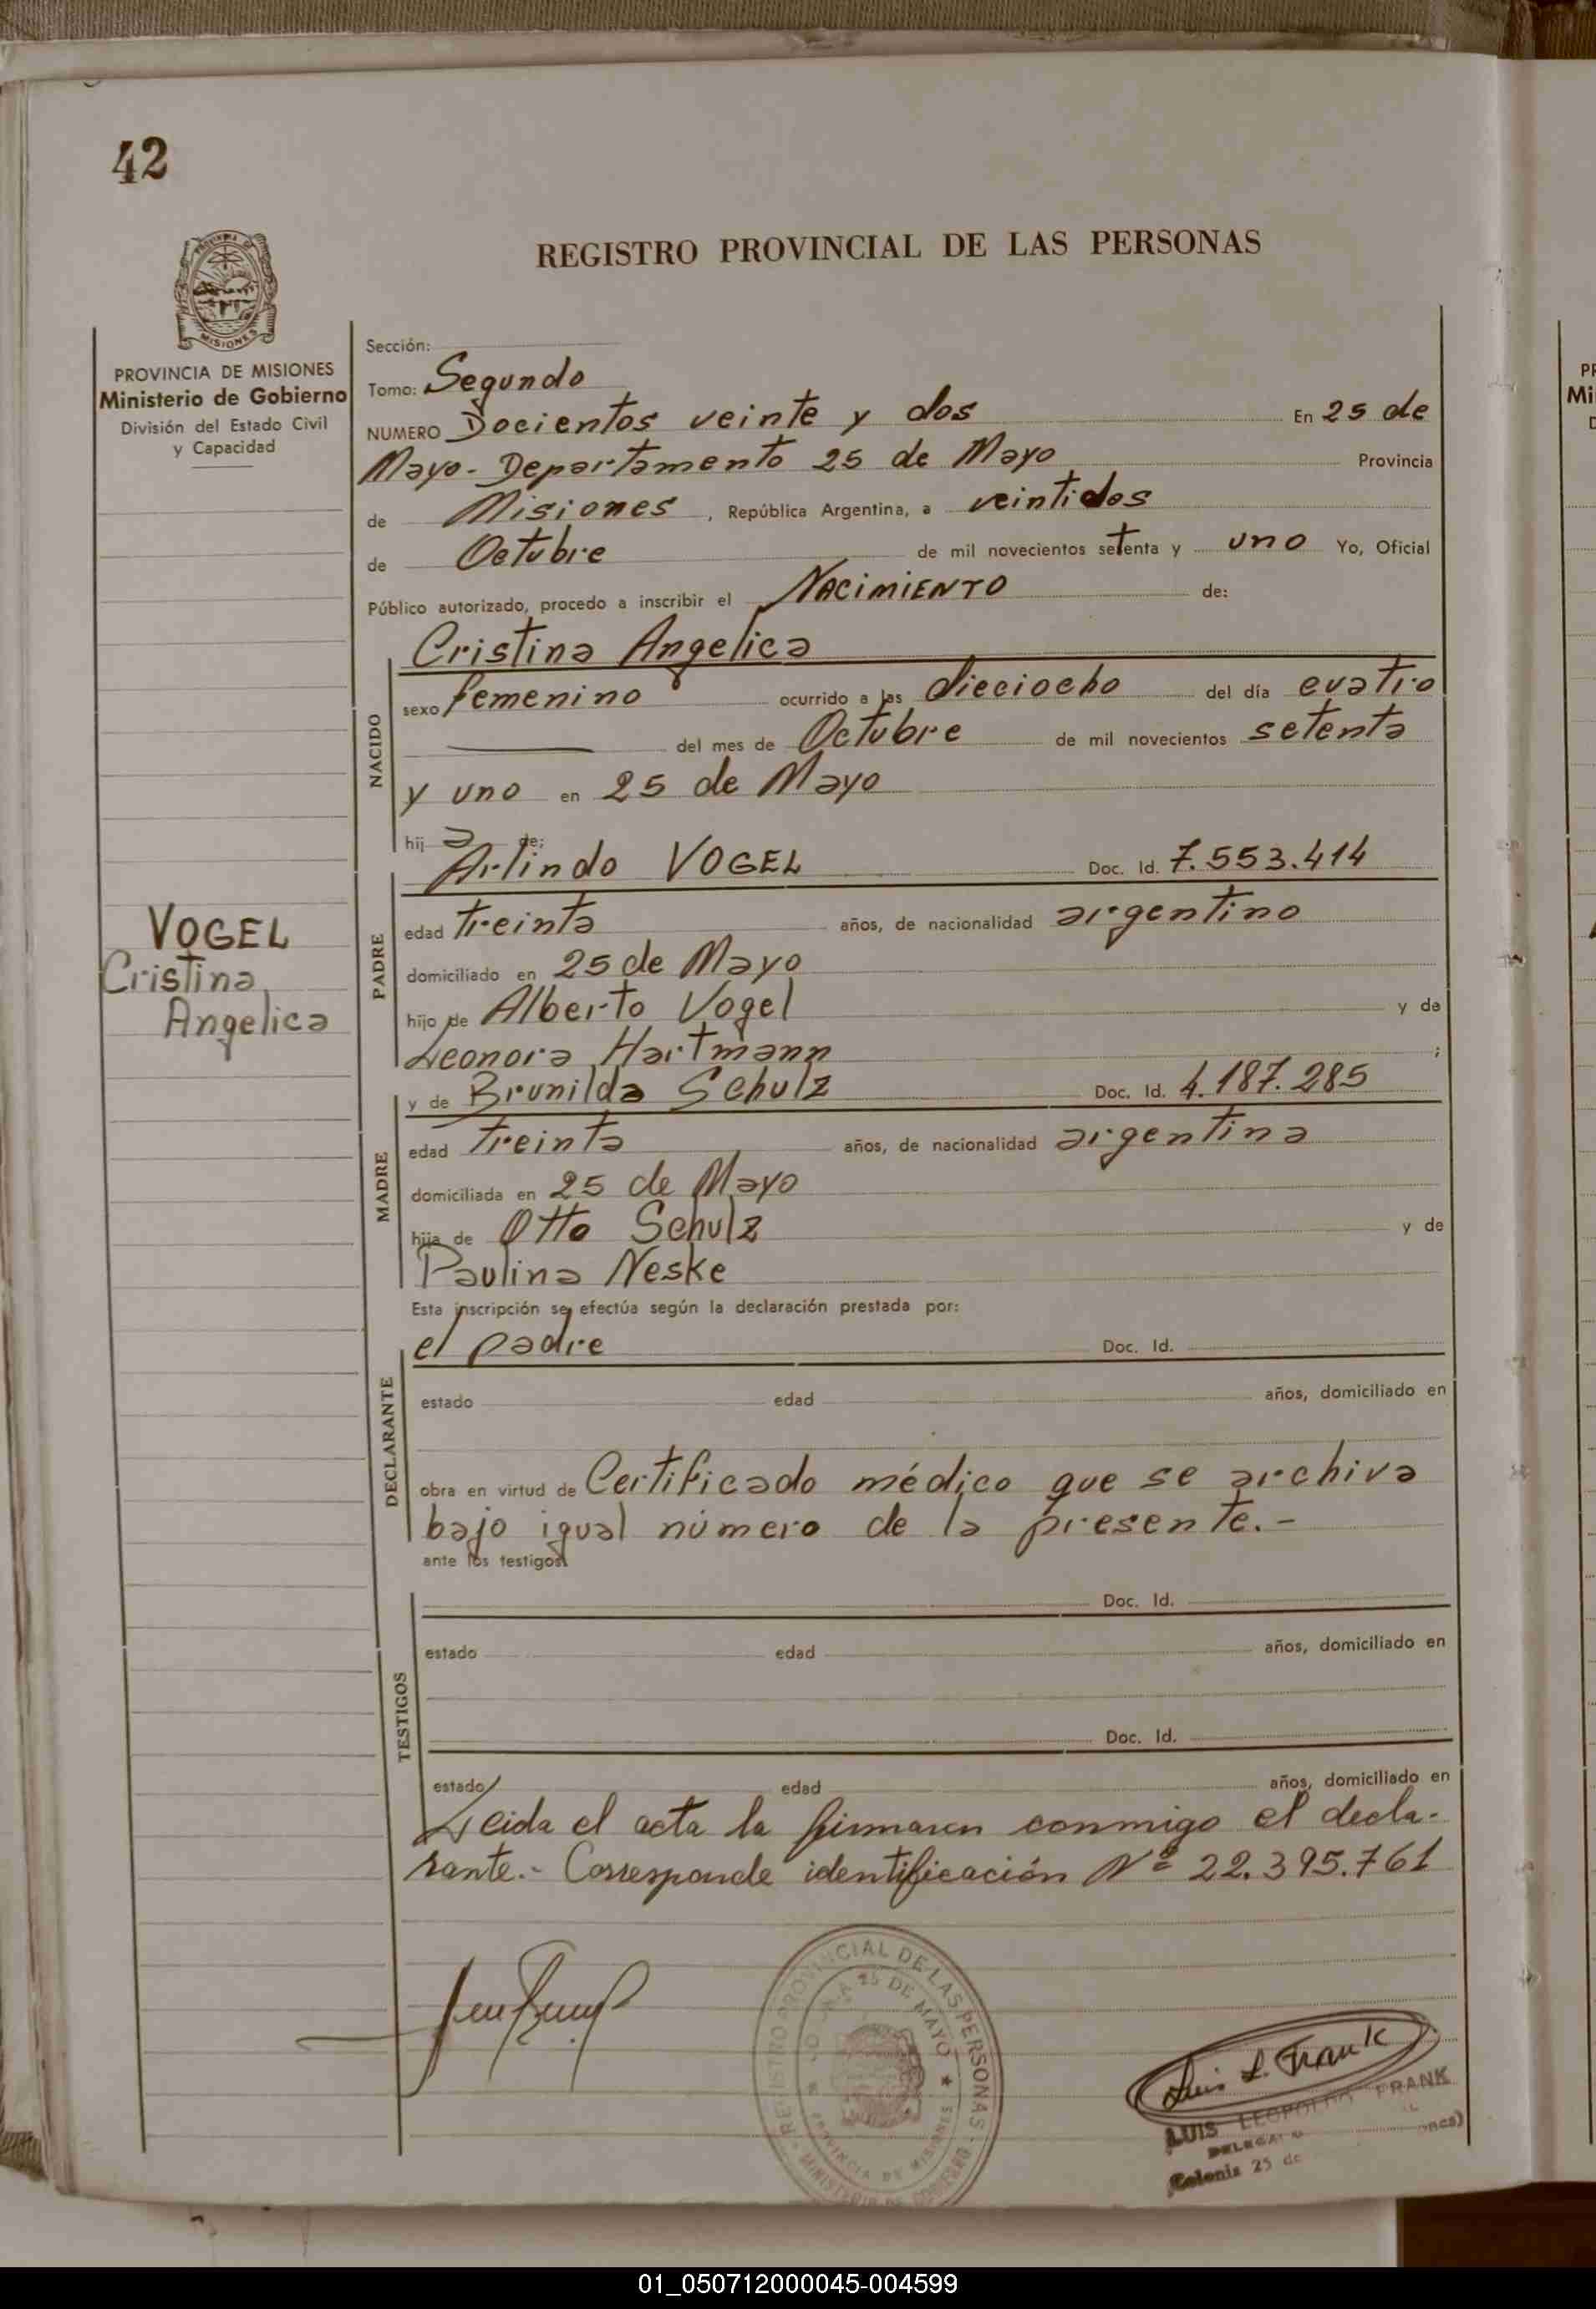 42
REGISTRO PROVINCIAL DE LAS PERSONAS
MISIONES
PROVINCIA DE MISIONES
Ministerio de Gobierno
División del Estado Civil
y Capacidad
Sección:
Tomo: Segundo
NUMERO Docientos veinte y dos En 25 de
Mayo - Departamento 25 de Mayo Provincia
de Misiones, República Argentina, a veintidos
de Octubre de mil novecientos setenta y uno Yo, Oficial
Público autorizado, procedo a inscribir el NACIMIENTO de:
NACIDO
Cristina Angelica
sexo femenino ocurrido a las dieciocho del día cuatro
del mes de Octubre de mil novecientos setenta
y uno en 25 de Mayo
hij a de:
PADRE
Arlindo VOGEL Doc. Id. 7.553.414
edad treinta años, de nacionalidad argentino
domiciliado en 25 de Mayo
hijo de Alberto Vogel y de
Leonora Hartmann ;
VOGEL
Cristina
Angelica
MADRE
y de Brunilda Schulz Doc. Id. 4.187.285
edad treinta años, de nacionalidad argentina
domiciliada en 25 de Mayo
hija de Otto Schulz y de
Paulina Neske
Esta inscripción se efectúa según la declaración prestada por:
DECLARANTE
el padre Doc. Id.
estado edad años, domiciliado en
obra en virtud de Certificado médico que se archiva
bajo igual número de la presente.-
ante los testigos
TESTIGOS
Doc. Id.
estado edad años, domiciliado en
Doc. Id.
estado edad años, domiciliado en
Leida el acta la firmaron conmigo el decla-
rante.- Corresponde identificación Nº 22.395.761
REGISTRO PROVINCIAL DE LAS PERSONAS
25 DE MAYO
PROVINCIA DE MISIONES
MINISTERIO DE GOBIERNO
Luis L. Frank
LUIS LEOPOLDO FRANK
Colonia 25 de
01_050712000045-004599